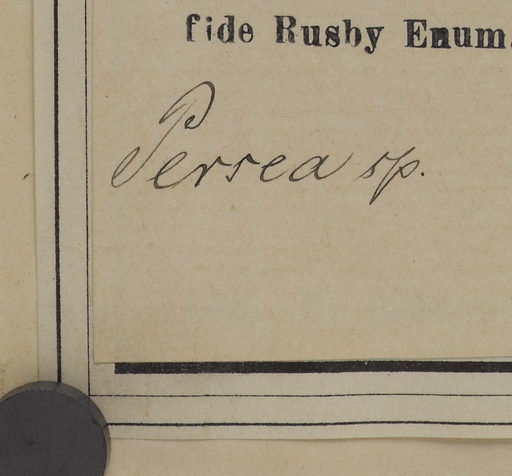 fide Rusby Enum.
Persea sp.